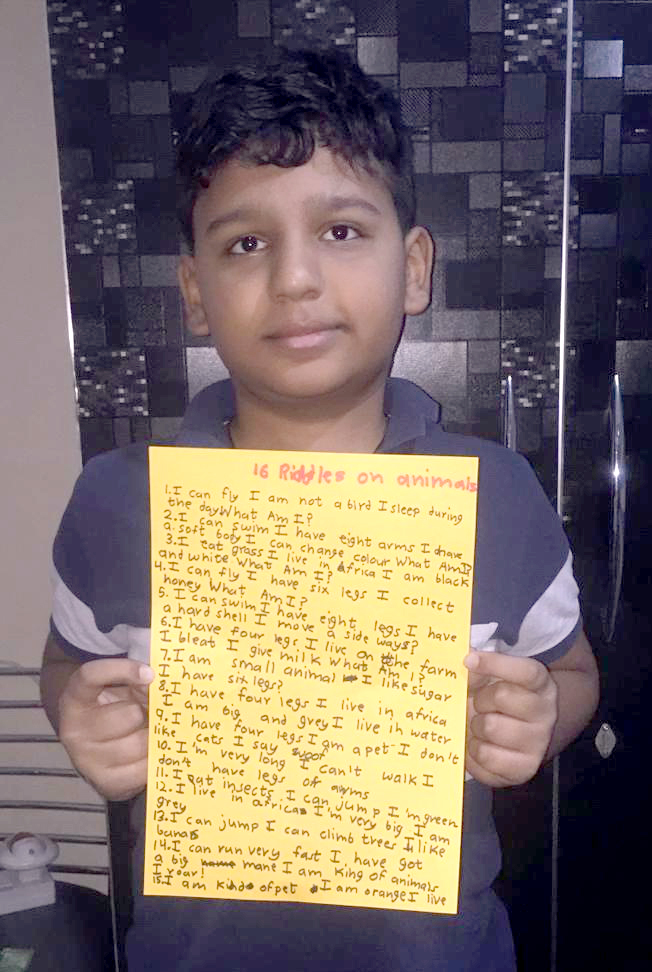 16 Riddles on animals
1.I can fly I am not a bird I sleep during
the day What Am I?
2.I can swim I have eight arms I have
a soft body I can change colour What Am I?
3.I eat grass I live in Africa I am black
and white What Am I?
4.I can fly I have six legs I collect
honey What Am I?
5.I can swim I have eight legs I have
a hard shell I move a side ways?
6.I have four legs I live on the farm
I bleat I give milk What Am I?
7.I am small animal I like sugar
I have six legs?
8.I have four legs I live in africa
I am big and grey I live in water
9.I have four legs I am a pet I don't
like cats I say woof
10.I'm very long I can't walk I
don't have legs or arms
11.I eat insects I can jump I'm green
12.I live in africa I'm very big I am
grey
13.I can jump I can climb trees I like
bunans
14.I can run very fast I have got
a big mane I am king of animals
I roar!
15.I am kind of pet I am orange I live